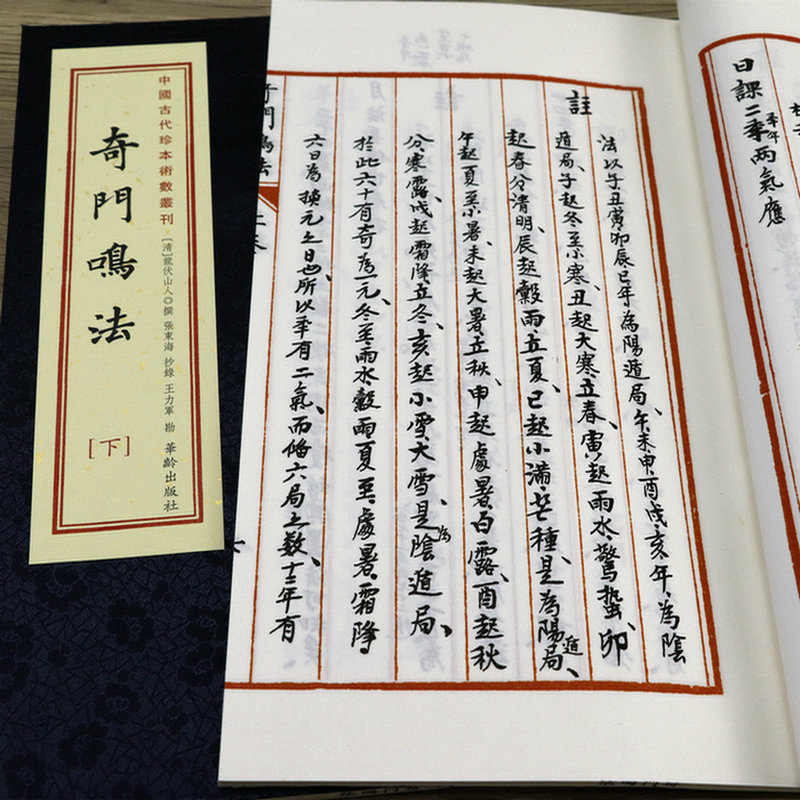 中國古代珍本術數叢刊
奇門鳴法
[清]龍伏山人◎撰 張東海 抄錄 王力軍 勘 華齡出版社
[下]
日課二季兩氣應
註
法以子、丑、寅、卯辰巳年為陽遁局、午、未、申、酉戌、亥年、為陰
遁局、子起冬至小寒、丑起大寒、立春、寅起雨水、驚蟄、卯
起春分清明、辰起穀雨、立夏、巳起小滿、芒種、是為陽遁局、
午起夏至小暑、未起大暑、立秋、申起處暑、白露、酉起秋
分、寒露、戌起霜降、立冬、亥起小雪、大雪、是為陰遁局、
於此六十有奇為一元、冬至、雨水、穀雨夏至、處暑、霜降
六日為換元之日也、所以年有二氣、而脩六局之數、十二年有
奇門鳴法
二卷